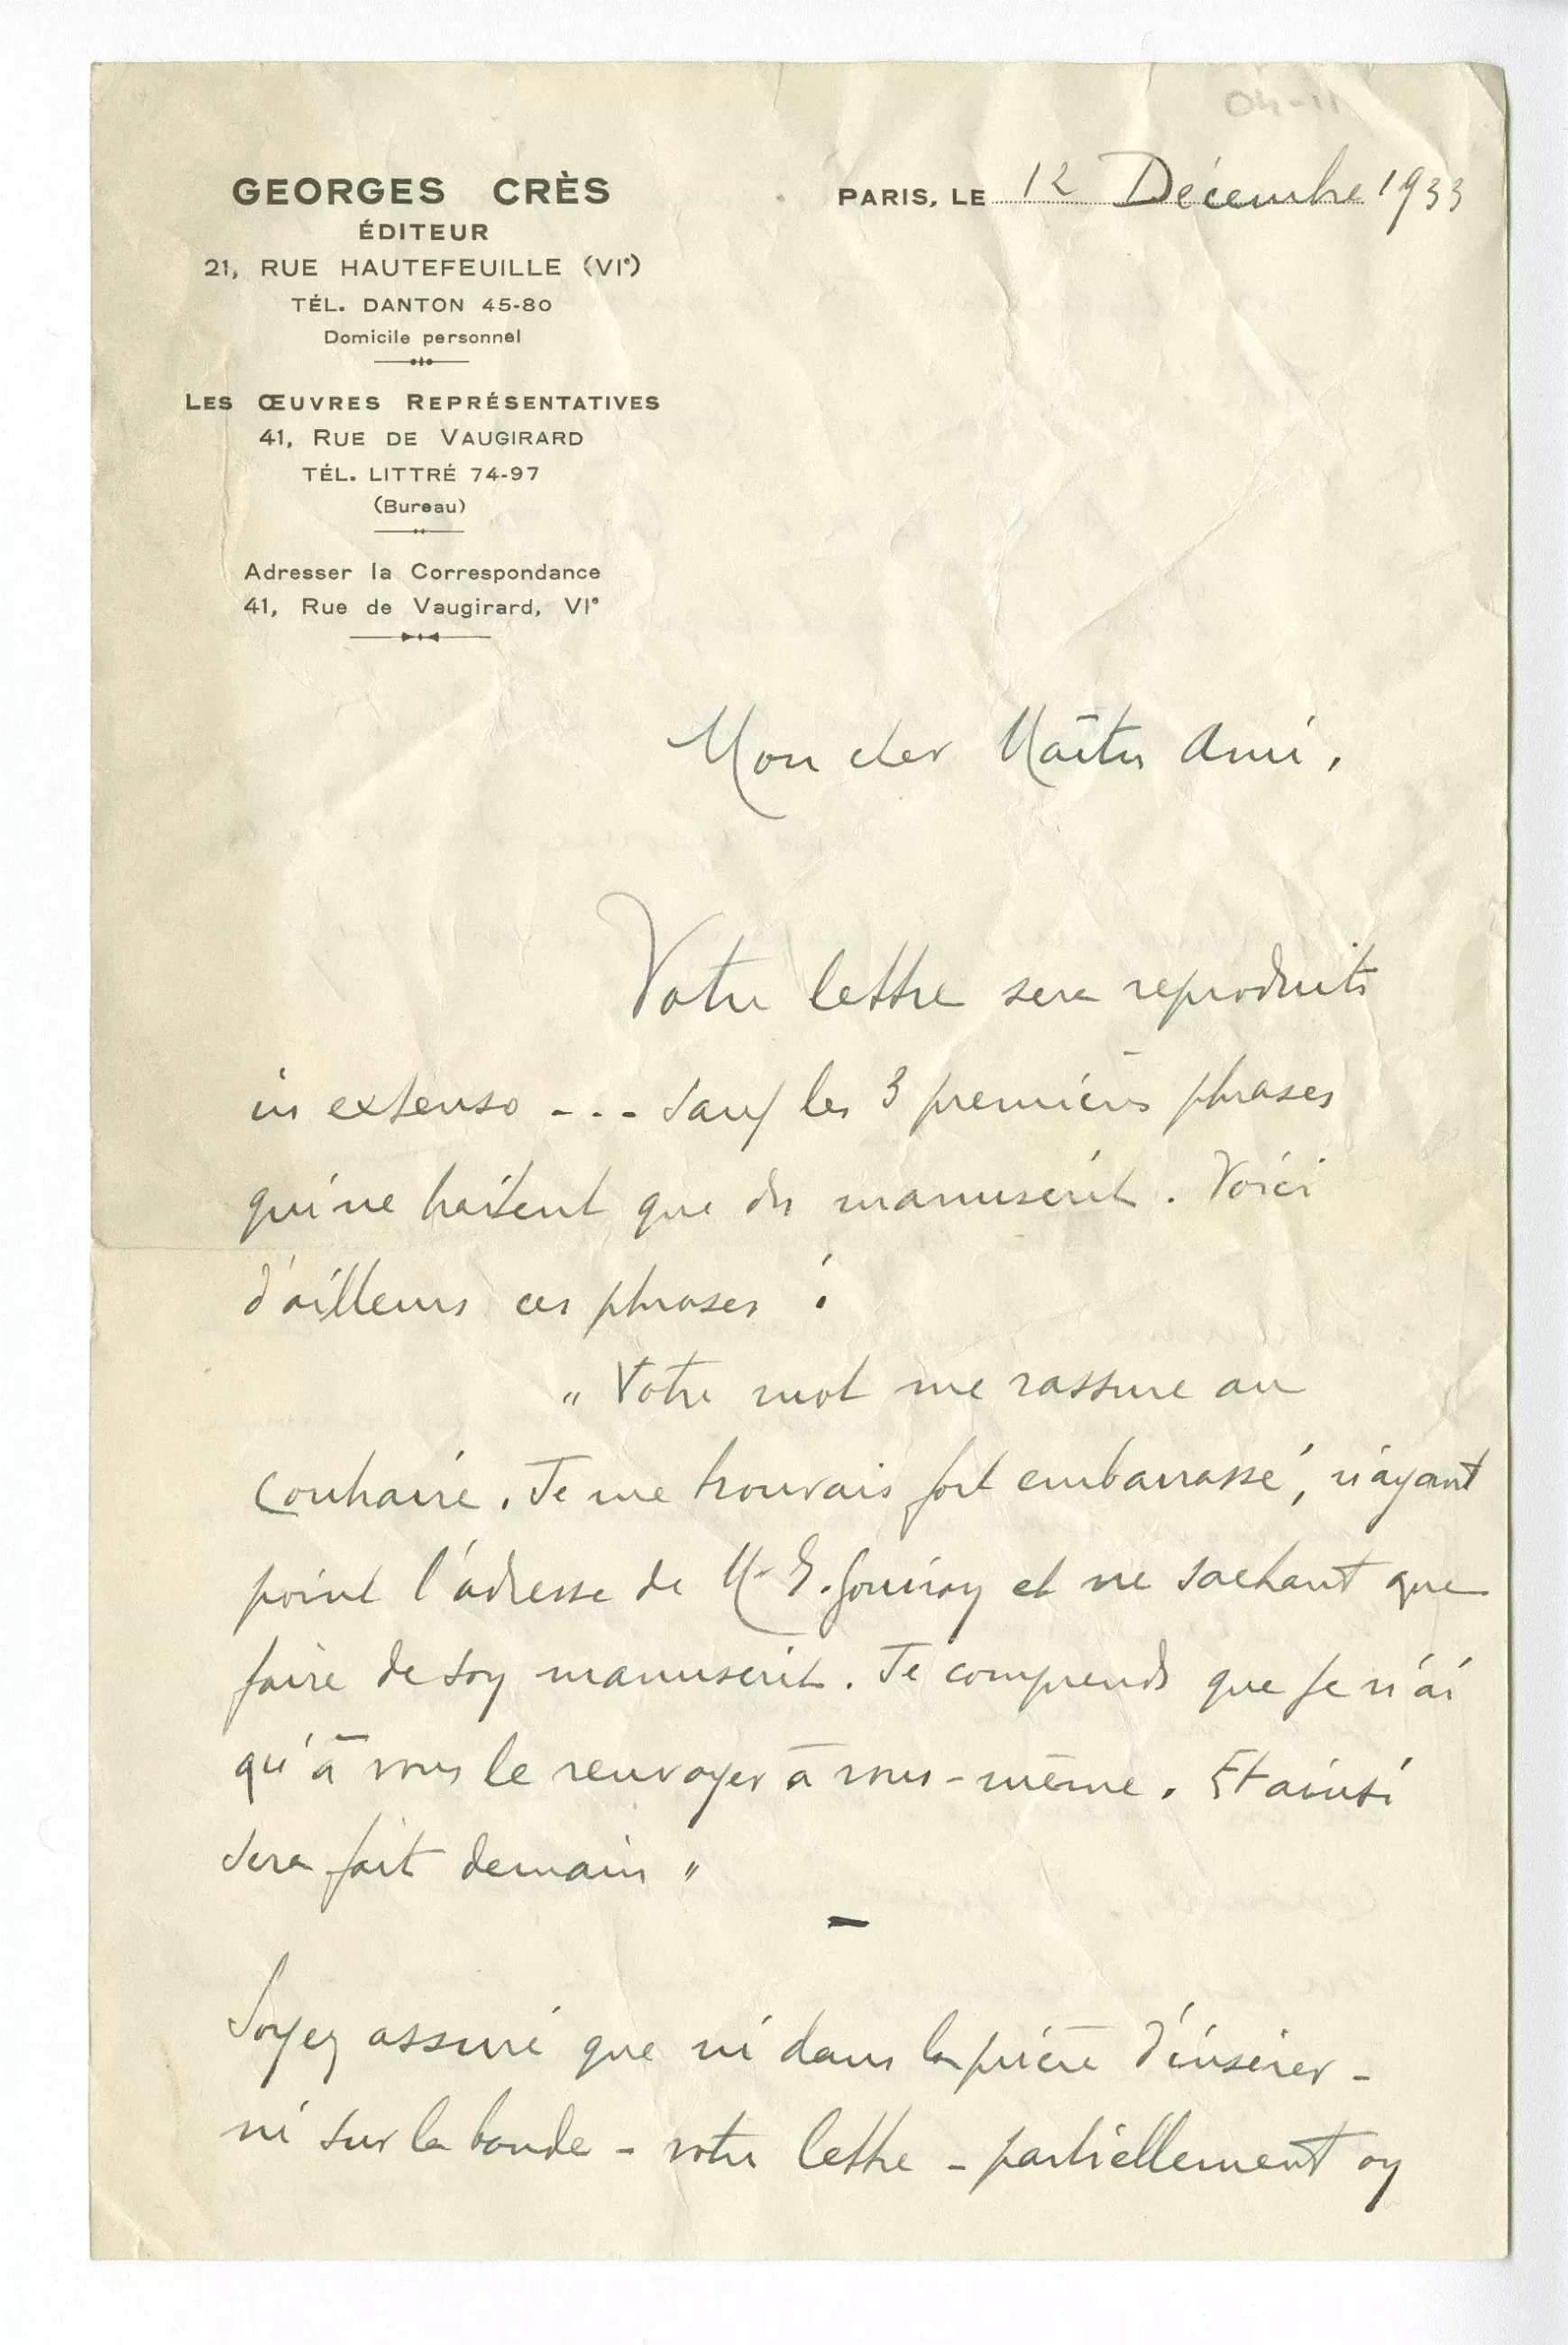 04-11
GEORGES CRÈS
ÉDITEUR
21, RUE HAUTEFEUILLE (VIe)
TÉL. DANTON 45-80
Domicile personnel
LES ŒUVRES REPRÉSENTATIVES
41, RUE DE VAUGIRARD
TÉL. LITTRÉ 74-97
(Bureau)
Adresser la Correspondance
41, Rue de Vaugirard, VIe
PARIS, LE 12 Décembre 1933
Mon cher Maître Ami,
Votre lettre sera reproduite
in extenso - . . - sauf les 3 premières phrases
qui ne traitent que du manuscrit. Voici
d'ailleurs ces phrases :
" Votre mot me rassure au
contraire. Je me trouvais fort embarrassé, n'ayant
point l'adresse de M. E. et ne sachant que
faire de son manuscrit. Je comprends que je n'ai
qu'à vous le renvoyer à vous-même. Et ainsi
sera fait demain "
—
Soyez assuré que ni dans la prière d'insérer -
ni sur la bande - votre lettre - partiellement ou